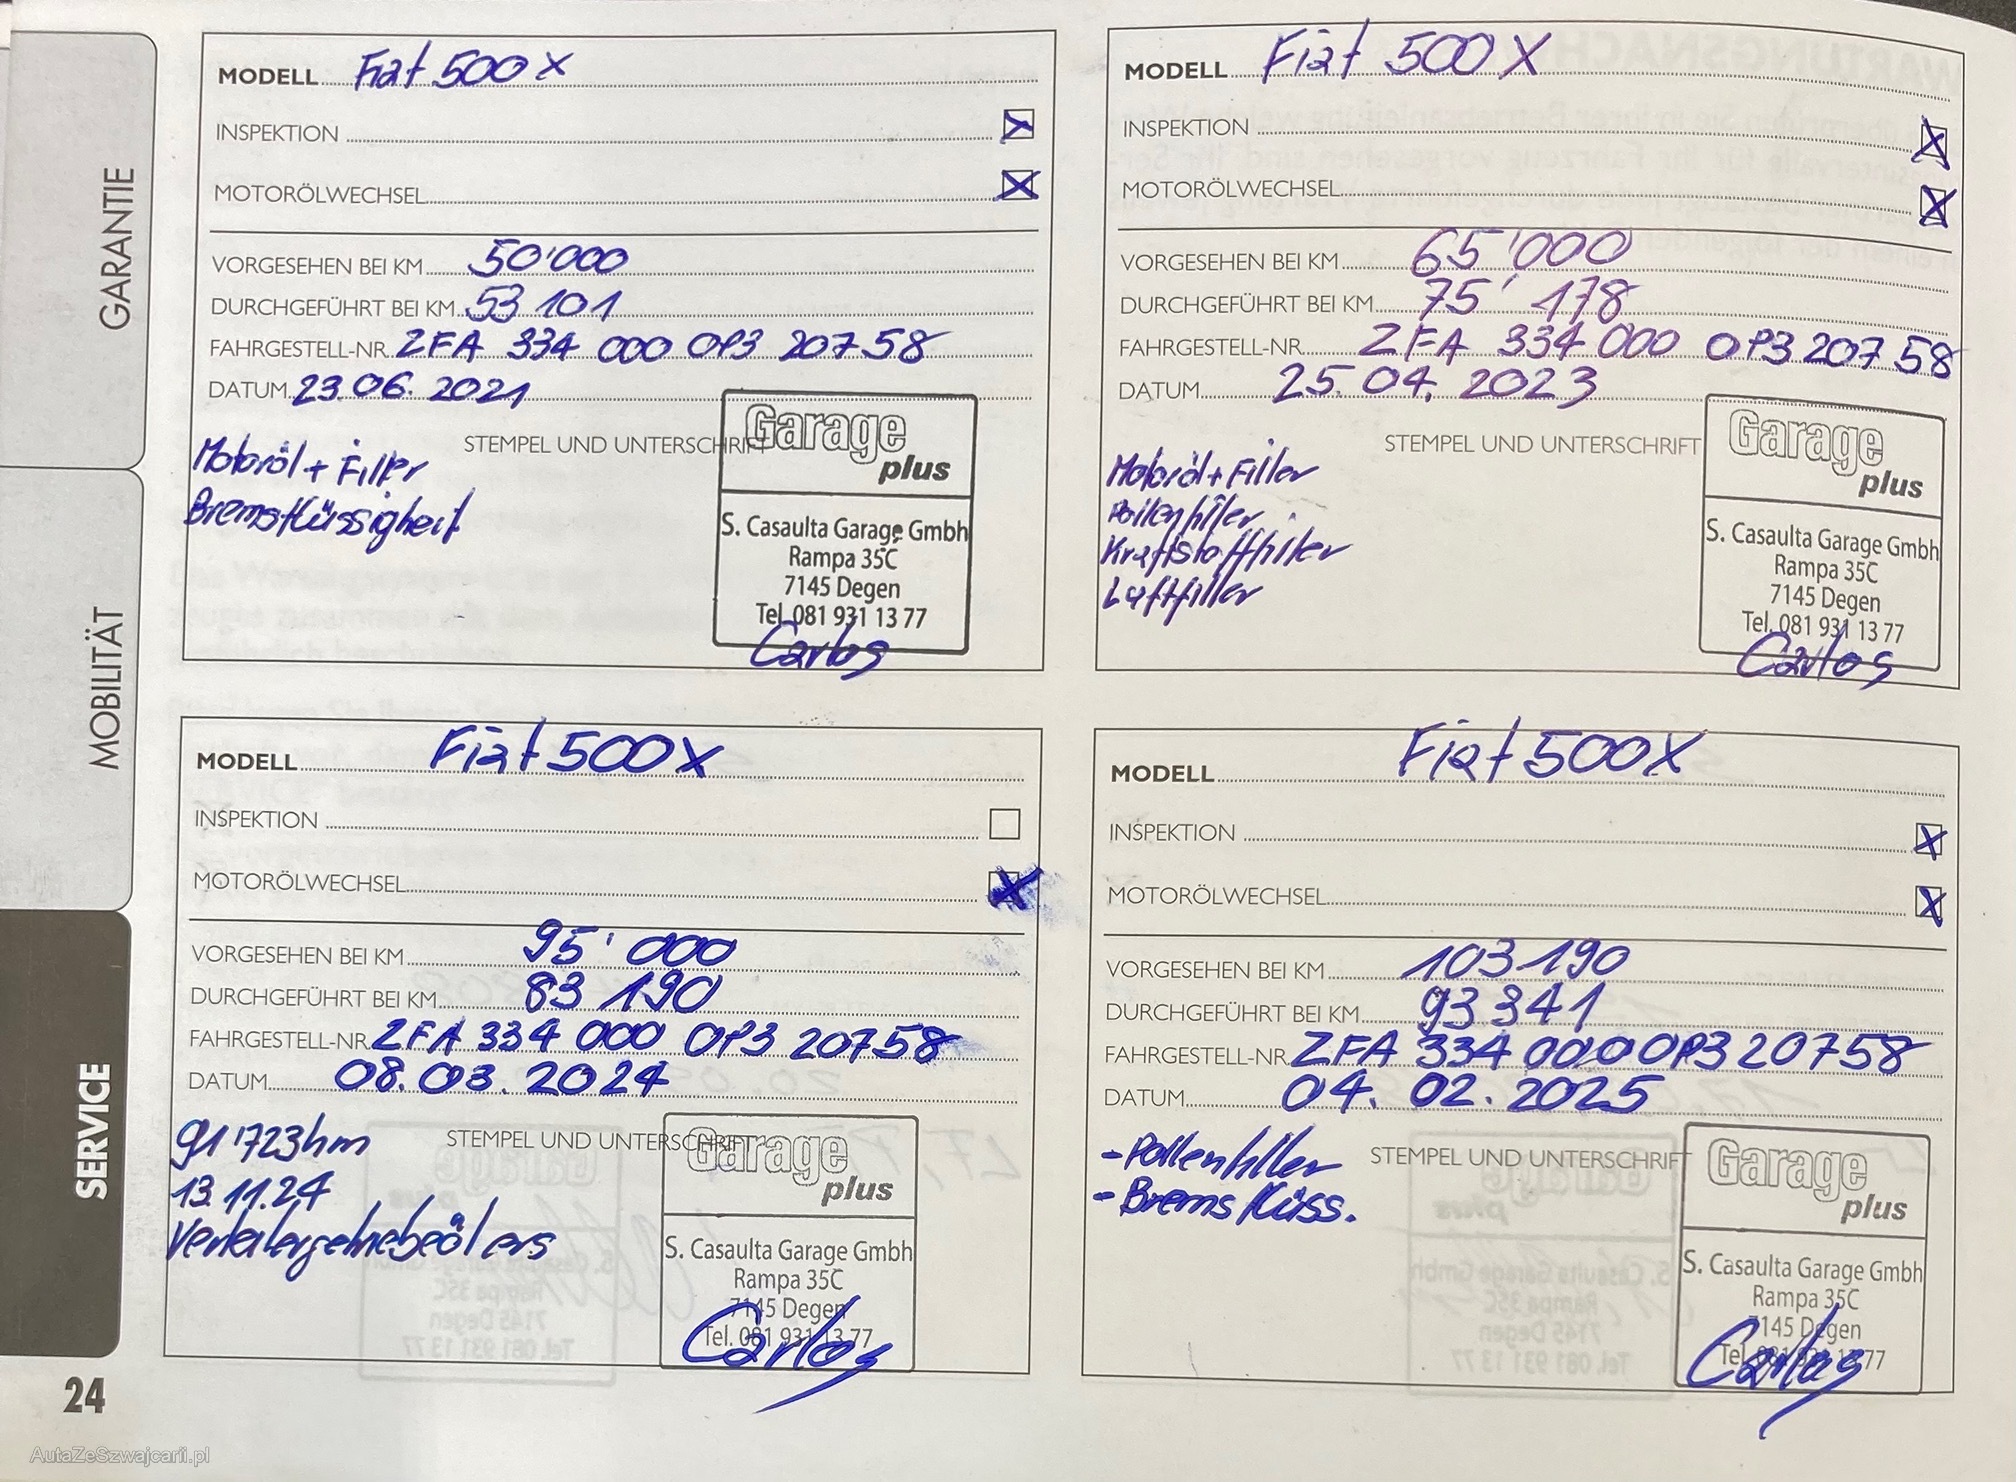 GARANTIE
MOBILITÄT
SERVICE
MODELL Fiat 500 X
INSPEKTION
MOTORÖLWECHSEL
VORGESEHEN BEI KM 50'000
DURCHGEFÜHRT BEI KM 53 101
FAHRGESTELL-NR. ZFA 334 000 0P3 20758
DATUM 23.06.2021
STEMPEL UND UNTERSCHRIFT
Motoröl + Filter
Bremsflüssigkeit
Garage
plus
S. Casaulta Garage Gmbh
Rampa 35C
7145 Degen
Tel. 081 931 13 77
Carlos
MODELL Fiat 500 X
INSPEKTION
MOTORÖLWECHSEL
VORGESEHEN BEI KM 65'000
DURCHGEFÜHRT BEI KM 75'178
FAHRGESTELL-NR. ZFA 334 000 0P3 207 58
DATUM 25.04.2023
STEMPEL UND UNTERSCHRIFT
Motoröl + Filter
Pollenfilter
Kraftstofffilter
Luftfilter
Garage
plus
S. Casaulta Garage Gmbh
Rampa 35C
7145 Degen
Tel. 081 931 13 77
Carlos
MODELL Fiat 500X
INSPEKTION
MOTORÖLWECHSEL
VORGESEHEN BEI KM 95'000
DURCHGEFÜHRT BEI KM 83 190
FAHRGESTELL-NR. ZFA 334 000 0P3 20758
DATUM 08.03.2024
STEMPEL UND UNTERSCHRIFT
91'723km
13.11.24
Verteilergetriebeöl ers
Garage
plus
S. Casaulta Garage Gmbh
Rampa 35C
7145 Degen
Tel. 081 931 13 77
Carlos
MODELL Fiat 500X
INSPEKTION
MOTORÖLWECHSEL
VORGESEHEN BEI KM 103 190
DURCHGEFÜHRT BEI KM 93 341
FAHRGESTELL-NR. ZFA 334 000 0P3 20758
DATUM 04.02.2025
STEMPEL UND UNTERSCHRIFT
- Pollenfilter
- Bremsflüss.
Garage
plus
S. Casaulta Garage Gmbh
Rampa 35C
7145 Degen
Tel. 081 931 13 77
Carlos
24
AutaZeSzwajcarii.pl